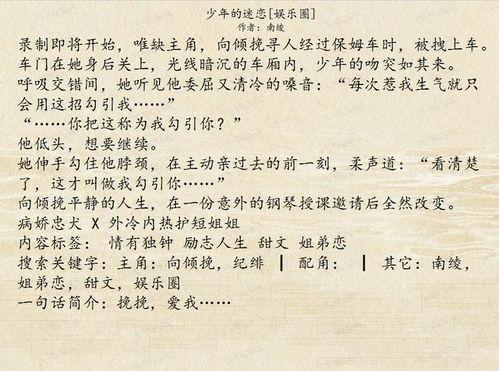 少年的迷恋[娱乐圈]
作者：南绫
录制即将开始，唯缺主角，向倾挽寻人经过保姆车时，被拽上车。
车门在她身后关上，光线暗沉的车厢内，少年的吻突如其来。
呼吸交错间，她听见他委屈又清冷的嗓音：“每次惹我生气就只
会用这招勾引我……”
“……你把这称为我勾引你？”
他低头，想要继续。
她伸手勾住他脖颈，在主动亲过去的前一刻，柔声道：“看清楚
了，这才叫做我勾引你……”
向倾挽平静的人生，在一份意外的钢琴授课邀请后全然改变。
病娇忠犬 X 外冷内热护短姐姐
内容标签： 情有独钟 励志人生 甜文 姐弟恋
搜索关键字：主角：向倾挽，纪绯 ┃ 配角： ┃ 其它：南绫，
姐弟恋，甜文，娱乐圈
一句话简介：挽挽，爱我……